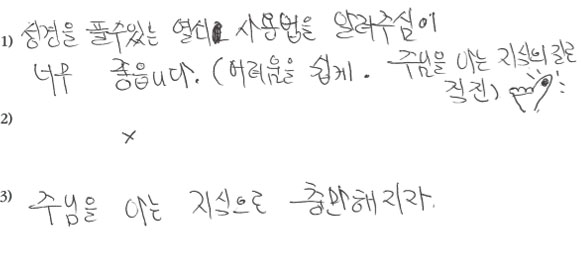 1) 성경을 풀수있는 열쇠 사용법을 알려주심이
너무 좋읍니다. (어려움을 쉽게. 주님을 아는 지식의 길로
직진)
2)
x
3) 주님을 아는 지식으로 충만해지라.